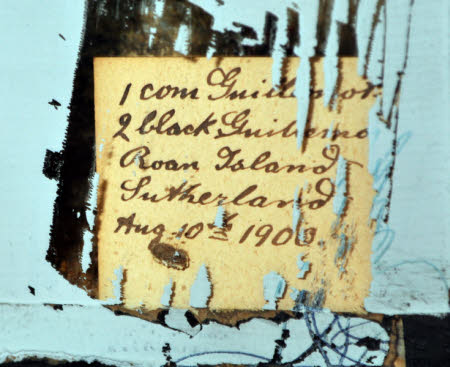 1 com Guillemot
2 black Guillemo
Roan Island
Sutherland
Aug 10th 1900